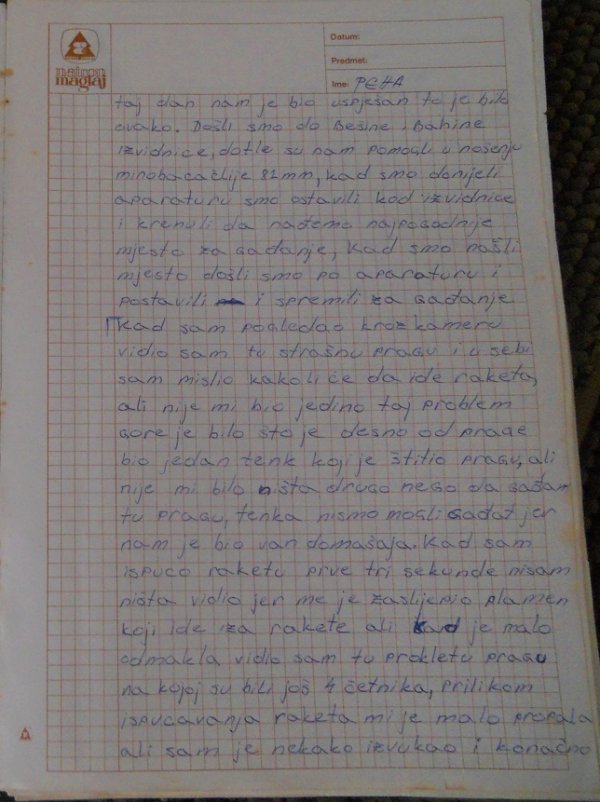 natron
maglaj
Datum:
Predmet:
Ime: PEHA
taj dan nam je bio uspješan to je bilo
ovako. Došli smo do Bešine i Bahine
izvidnice, dotle su nam pomogli u nošenju
minobacačlije 82mm, kad smo donijeli
aparaturu smo ostavili kod izvidnice
i krenuli da nađemo najpogodnije
mjesto za gađanje, kad smo našli
mjesto došli smo po aparaturu i
postavili i spremili za gađanje
Kad sam pogledao kroz kameru
vidio sam tu strašnu pragu i u sebi
sam mislio kako li će da ide raketa,
ali nije mi bio jedino taj problem
gore je bilo što je desno od prage
bio jedan tenk koji je štitio pragu, ali
nije mi bilo ništa drugo nego da gađam
tu pragu, tenka nismo mogli gađat jer
nam je bio van domašaja. Kad sam
ispuco raketu prve tri sekunde nisam
ništa vidio jer me je zaslijepio plamen
koji ide iza rakete ali kad je malo
odmakla vidio sam tu prokletu pragu
na kojoj su bili još 4 četnika, prilikom
ispucavanja raketa mi je malo propala
ali sam je nekako izvukao i konačno